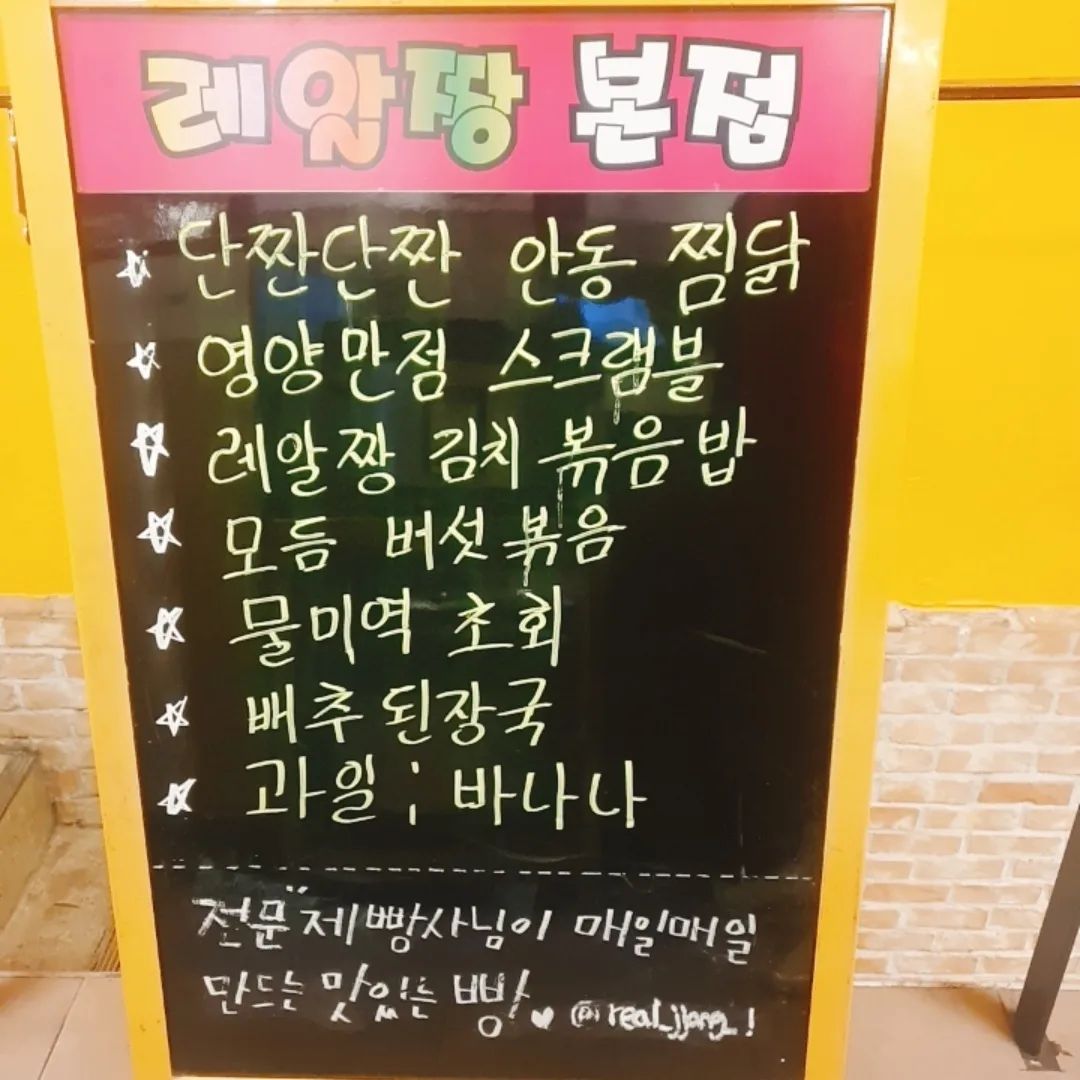 레알짱 본점
단짠단짠 안동 찜닭
영양만점 스크램블
레알짱 김치 볶음밥
모듬 버섯볶음
물미역 초회
배추된장국
과일 ; 바나나
전문 제빵사님이 매일매일
만드는 맛있는 빵 ♥ @real_jjang_!